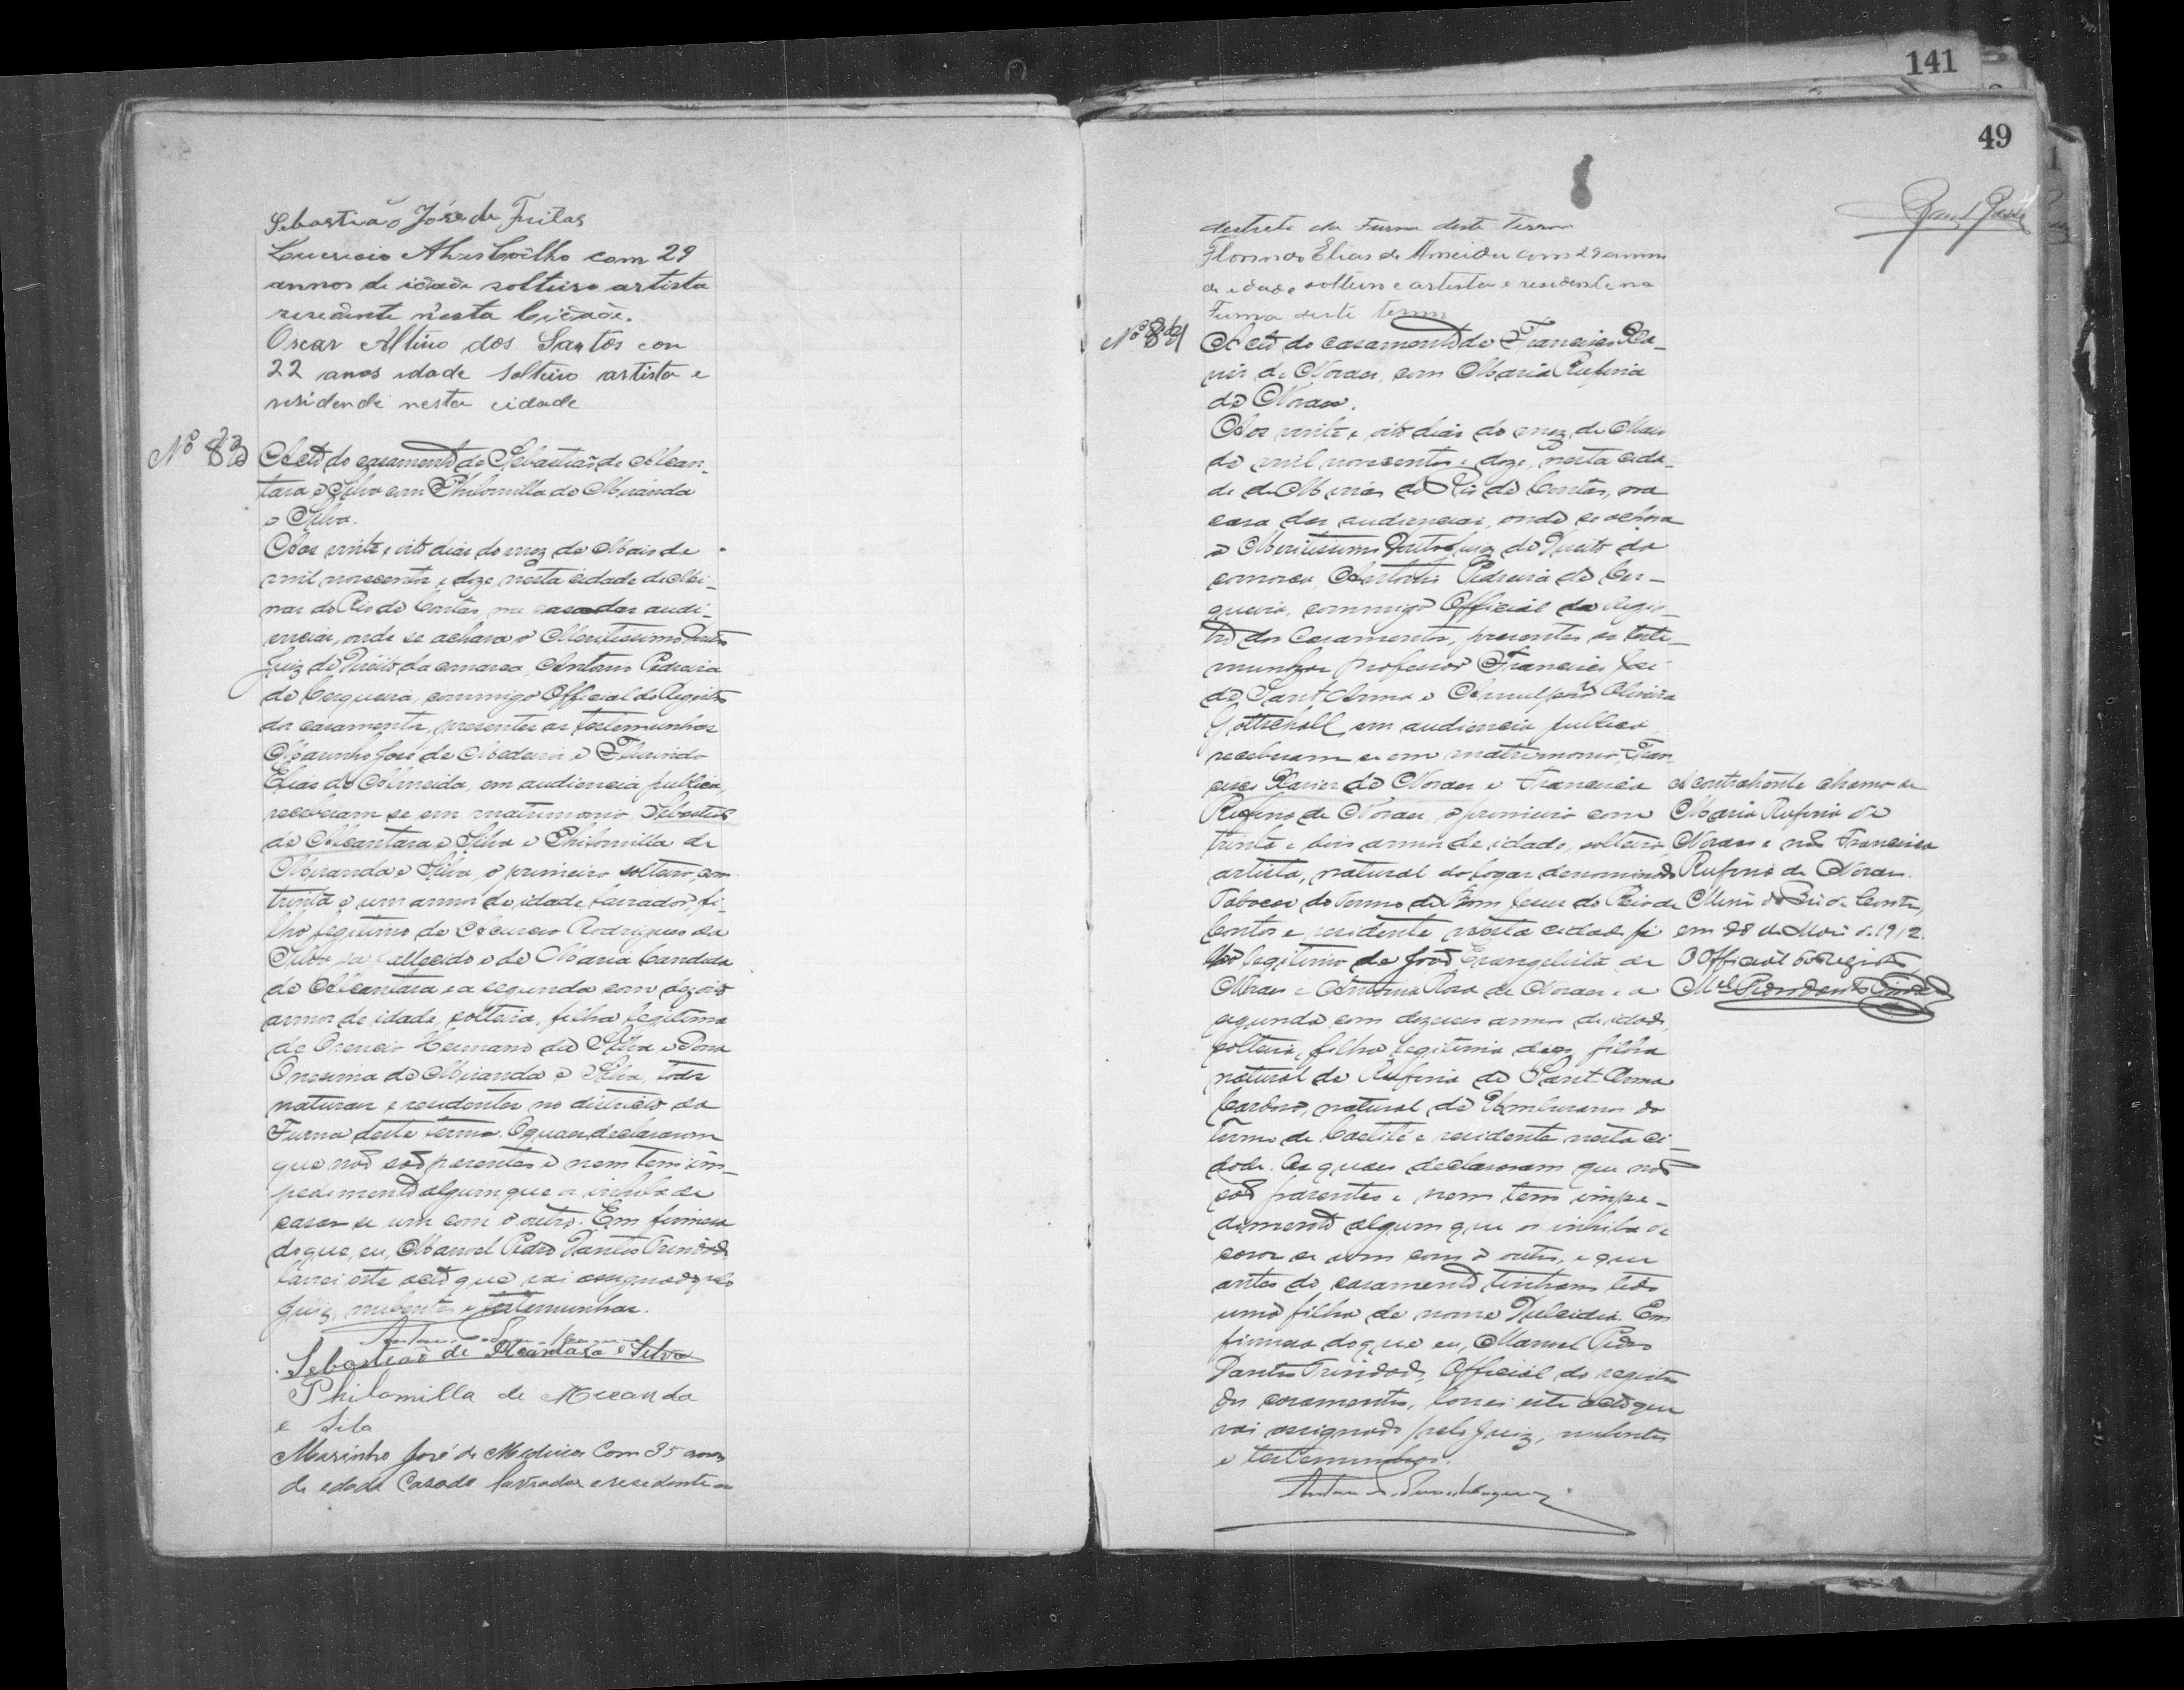 141
49
Sebastião José de Freitas
Lucricio Alves Coêlho com 29
annos de idade solteiro artista
residente n'esta Cidade.
Oscar Altino dos Santos con
22 anos idade solteiro artista e
residende nesta cidade
Nº 83
Acto do casamento de Sebastião de Alcan-
tara e Silva com Philomilla de Miranda
e Silva.
Aos vinte e oito dias do mez de Maio de
mil novecentos e doze, nesta cidade de Mi-
nas do Rio de Contas, na casa das audi-
encias, onde se achava o Meritissimo Doutor
Juiz de Direito da comarca, Antonio Pedreira
de Cerqueira, commigo Official do Registro
dos casamentos, presentes as testemunhas
Marinho José de Medeiros e Florindo
Elias de Almeida, em audiencia publica,
receberam se em matrimonio Sebastião
de Alcantara e Silva e Philomilla de
Miranda e Silva, o primeiro solteiro, com
trinta e um annos de idade, lavrador, fi-
lho legitimo de Rodrigues da
Silva ja fallecido e de Maria Candida
de Alcantara e a segunda com dezoito
annos de idade, solteira, filha legitima
de Orencio Hermano da Silva e Dona
Onesima de Miranda e Silva, todos
naturaes e residentes no districto da
Furna deste termo. Os quaes declararam
que não são parentes e nem tem im-
pedimento algum que os inhiba de
casar se um com o outro. Em firmesa
do que, eu, Manoel Pedro Dantes Trindade
lavrei este acto que vai assignado pelo
Juiz, nubentes e testemunhas.
Sebastião de Alcantara e Silva
Philomilla de Miranda
e Sila
Marinho José de Medeiros Com 35 annos
de edade Casado lavrador e residente no
destreto da Furna deste termo
Florindo Elias de Almeida com 29 annos
de edade solteiro e artista e residente na
Furna deste termo
Nº 84
Acto do casamento de Francisco Xa-
vier de Novaes, com Maria Rufina
de Novaes.
Aos vinte e oito dias do mez de Maio
de mil novecentos e doze, nesta cida-
de de Minas do Rio de Contas, na
casa das audiencias, onde se achava
o Meritissimo Doutor Juiz de Direito da
comarca, Antonio Pedreira de Cer-
queira, commigo Official do Regis-
tro dos Casamentos, presentes as teste-
munhas professor Francisco José
de Sant'Anna e Oliveira
Gottschall, em audiencia publica
receberam se em matrimonio, Fran-
cisco Xavier de Novaes e Francisca
Rufina de Novaes, o primeiro com
trinta e dois annos de idade, solteiro,
artista, natural do logar denominado
Tabocas do Termo de Bom Jesus do Rio de
Contas e residente nesta cidade, fi-
lho legitimo de João Evangelista de
Novaes e Antonia Rosa de Novaes e a
segunda com dezeseis annos de idade,
solteira, filha legitima digo, filha
natural de Rufina de Sant'Anna
Cardoso, natural de Umburanas do
Termo de Caetité e residente nesta ci-
dade. Os quaes declararam que não
são parentes e nem tem impe-
dimento algum que os inhiba de
casar se um com o outro, e que
antes do casamento tinham tido
uma filha de nome Dulcidia. Em
firmesa do que eu, Manoel Pedro
Dantes Trindade, Official do registro
dos casamentos, lavrei este acto que
vai assignado pelo Juiz, nubentes
e testemunhas.
A contrahente chama se
Maria Rufina de
Novaes e não Francisca
Rufina de Novaes.
Minas do Rio de Contas,
em 28 de Maio de 1912.
O Official do registro